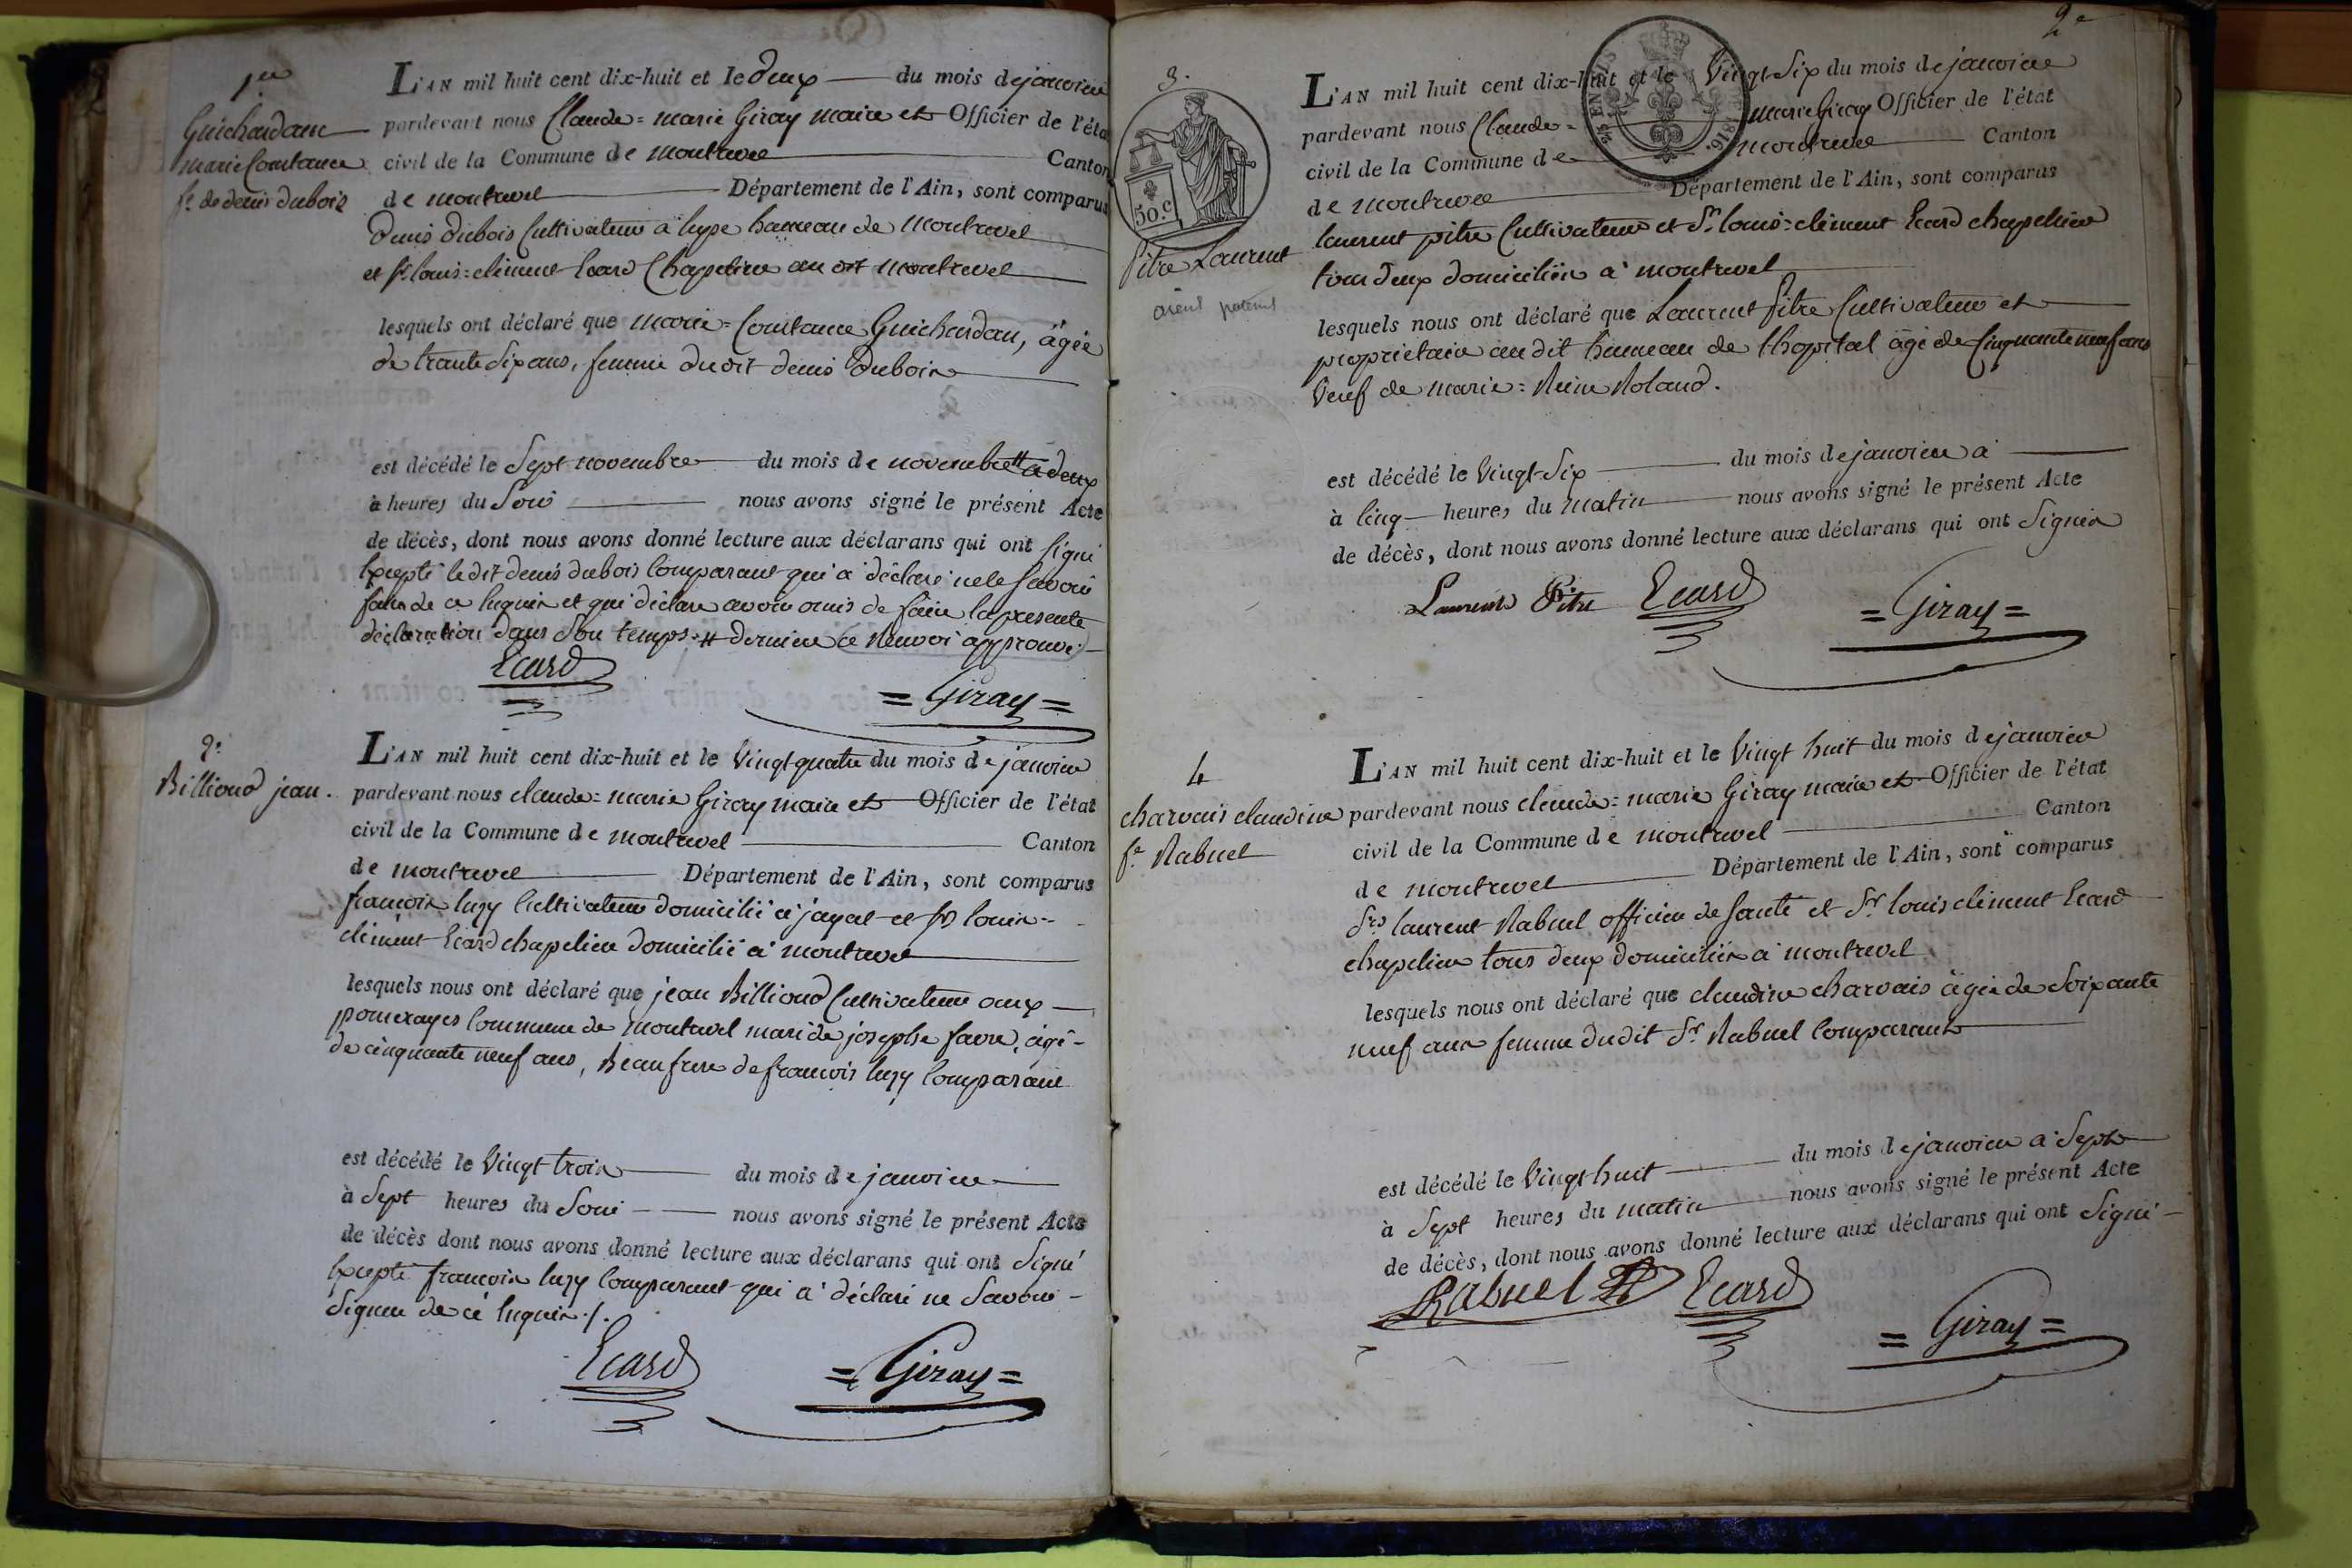 1re
Guichardan
marie Constance
fe de denis dubois
L'AN mil huit cent dix-huit et le deux du mois de janvier
pardevant nous Claude=marie Giray maire et Officier de l'état
civil de la Commune de montrevel Canton
de montrevel Département de l'Ain, sont comparus
denis dubois Cultivateur à hameau de Montrevel
et Sr louis=clément Ecard Chapelier au dit montrevel
lesquels ont déclaré que marie=Constance Guichardan, âgée
de trante Six ans, femme du dit denis dubois
est décédé le Sept novembre du mois de novembre # à deux
à heures du Soir nous avons signé le présent Acte
de décès, dont nous avons donné lecture aux déclarans qui ont Signé
Excepté ledit denis dubois Comparant qui a déclaré ne le Savoir
faire de ce Enquis et qui déclare avoir omis de faire la présente
déclaration dans Son temps. # dernier ce Renvoi approuvé.
Ecard
= Giray =
2e
Billioud jean.
L'AN mil huit cent dix-huit et le Vingt quatre du mois de janvier
pardevant nous claude=marie Giray maire et Officier de l'état
civil de la Commune de montrevel Canton
de montrevel Département de l'Ain, sont comparus
françois luzy Cultivateur domicilié à jayat et Sr louis=
clément Ecard chapelier domicilié à montrevel
lesquels nous ont déclaré que jean Billioud Cultivateur aux
pomerayes Commune de montrevel mari de josephe favre, âgé
de cinquante neuf ans, Beaufrere de françois luzy Comparant
est décédé le Vingt trois du mois de janvier
à Sept heures du Soir nous avons signé le présent Acte
de décès dont nous avons donné lecture aux déclarans qui ont Signé
Excepté françois luzy Comparant qui a déclaré ne Savoir
Signer de ce Enquis ./.
Ecard
= Giray =
2e
3.
50.c
Pitre Laurent
L'AN mil huit cent dix-huit et le Vingt-Six du mois de janvier
pardevant nous Claude= marie Giray Officier de l'état
civil de la Commune de montrevel Canton
de montrevel Département de l'Ain, sont comparus
laurent pitre Cultivateur et Sr louis=clément Ecard chapelier
tous deux domiciliés à montrevel
lesquels nous ont déclaré que Laurent Pitre Cultivateur et
propriétaire au dit hameau de l'hopital âgé de Cinquante neuf ans
Veuf de marie=Reine Roland.
est décédé le Vingt-Six du mois de janvier à
à Cinq heures du matin nous avons signé le présent Acte
de décès, dont nous avons donné lecture aux déclarans qui ont Signés
Laurent Pitre Ecard
= Giray =
4
charvais claudine
fe Rabuel
L'AN mil huit cent dix-huit et le Vingt huit du mois de janvier
pardevant nous claude=marie Giray maire et Officier de l'état
civil de la Commune de montrevel Canton
de montrevel Département de l'Ain, sont comparus
Srs laurent Rabuel officier de Santé et Sr louis clément Ecard
chapelier tous deux domiciliés à montrevel
lesquels nous ont déclaré que claudine charvais âgée de Soixante
neuf ans femme dudit Sr Rabuel Comparant
est décédé le Vingt huit du mois de janvier à Sept
à Sept heures du matin nous avons signé le présent Acte
de décès, dont nous avons donné lecture aux déclarans qui ont Signé
Rabuel Ecard
= Giray =